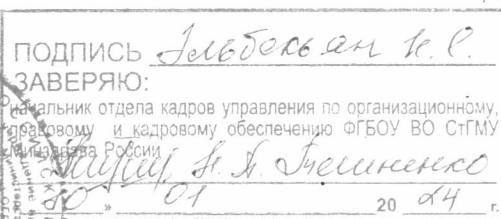 ПОДПИСЬ Эльбекьян К.С.
ЗАВЕРЯЮ:
начальник отдела кадров управления по организационному,
правовому и кадровому обеспечению ФГБОУ ВО СтГМУ
Минздрава России Н.А.
" 01 20 24 г.